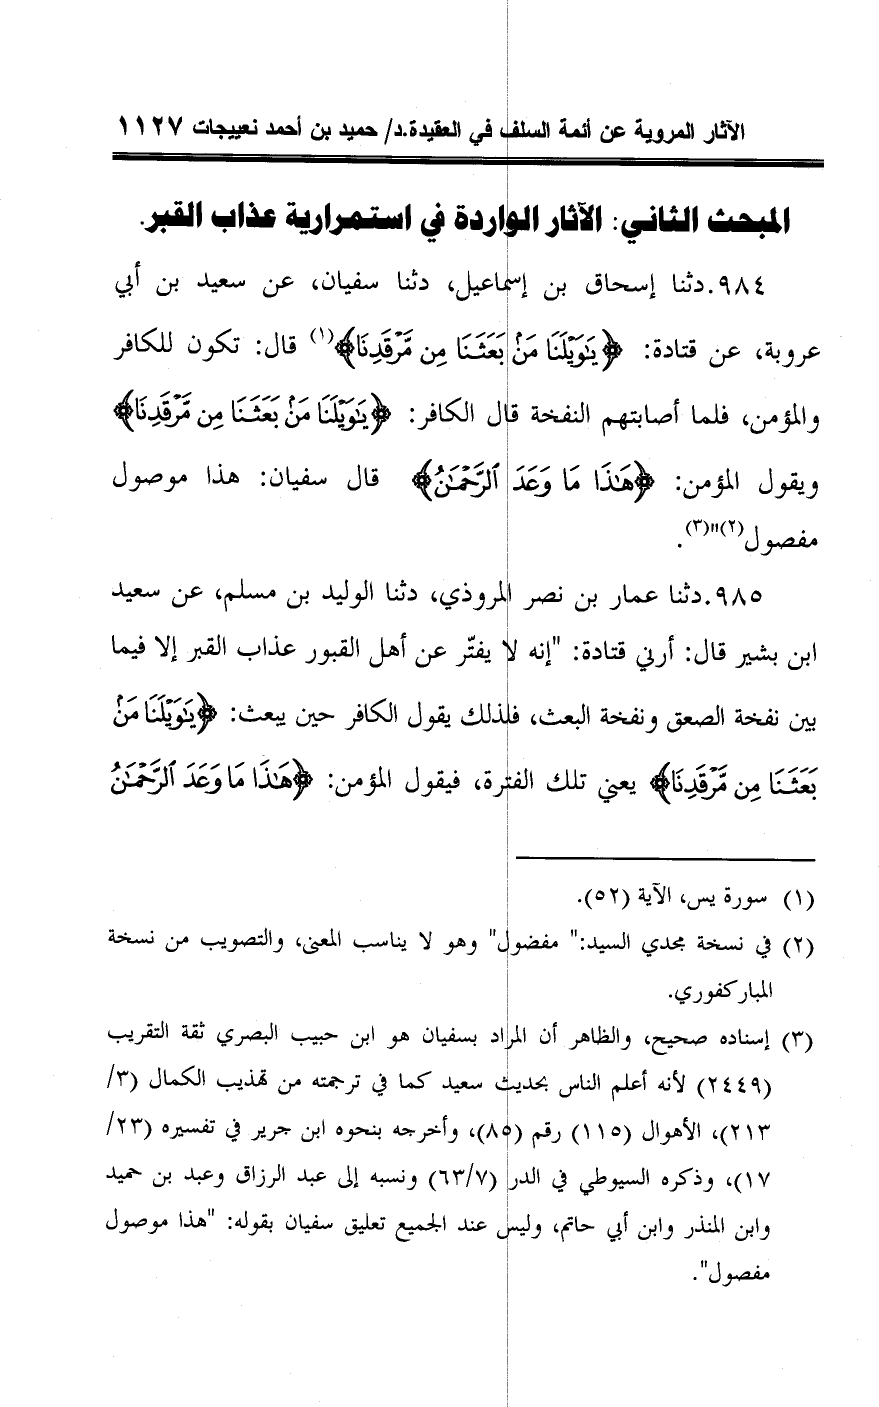 الآثار المروية عن أئمة السلف في العقيدة.د/ حميد بن أحمد نعييجات ١١٢٧
المبحث الثاني: الآثار الواردة في استمرارية عذاب القبر.
٩٨٤.دثنا إسحاق بن إسماعيل، دثنا سفيان، عن سعيد بن أبي
عروبة، عن قتادة: ﴿يَٰوَيْلَنَا مَنۢ بَعَثَنَا مِن مَّرْقَدِنَا﴾(١) قال: تكون للكافر
والمؤمن، فلما أصابتهم النفخة قال الكافر: ﴿يَٰوَيْلَنَا مَنۢ بَعَثَنَا مِن مَّرْقَدِنَا﴾
ويقول المؤمن: ﴿هَٰذَا مَا وَعَدَ ٱلرَّحْمَٰنُ﴾ قال سفيان: هذا موصول
مفصول(٢)"(٣).
٩٨٥.دثنا عمار بن نصر المروذي، دثنا الوليد بن مسلم، عن سعيد
ابن بشير قال: أرني قتادة: "إنه لا يفتّر عن أهل القبور عذاب القبر إلا فيما
بين نفخة الصعق ونفخة البعث، فلذلك يقول الكافر حين يبعث: ﴿يَٰوَيْلَنَا مَنۢ
بَعَثَنَا مِن مَّرْقَدِنَا﴾ يعني تلك الفترة، فيقول المؤمن: ﴿هَٰذَا مَا وَعَدَ ٱلرَّحْمَٰنُ
(١) سورة يس، الآية (٥٢).
(٢) في نسخة مجدي السيد:" مفضول" وهو لا يناسب المعنى، والتصويب من نسخة
المباركفوري.
(٣) إسناده صحيح، والظاهر أن المراد بسفيان هو ابن حبيب البصري ثقة التقريب
(٢٤٤٩) لأنه أعلم الناس بحديث سعيد كما في ترجمته من تهذيب الكمال (٣/
٢١٣)، الأهوال (١١٥) رقم (٨٥)، وأخرجه بنحوه ابن جرير في تفسيره (٢٣/
١٧)، وذكره السيوطي في الدر (٦٣/٧) ونسبه إلى عبد الرزاق وعبد بن حميد
وابن المنذر وابن أبي حاتم، وليس عند الجميع تعليق سفيان بقوله: "هذا موصول
مفصول".